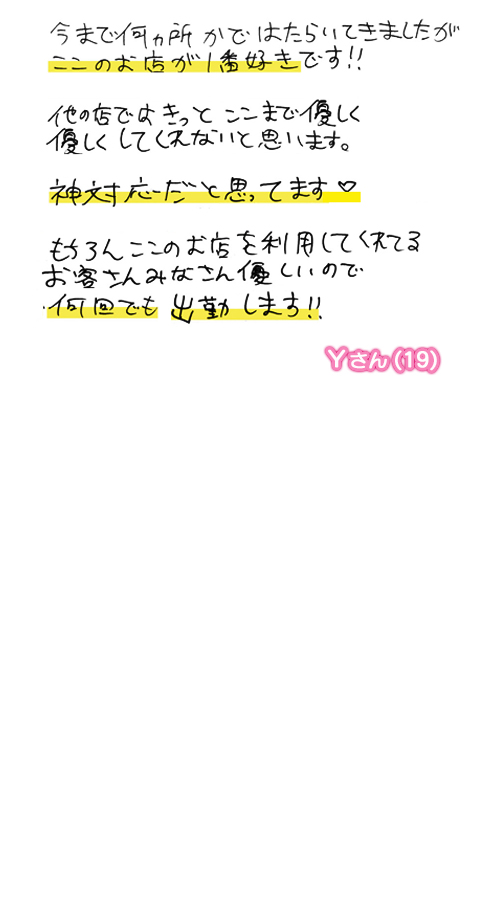 今まで何ヵ所かではたらいてきましたが
ここのお店が1番好きです!!
他の店でよきっとここまで優しく
優しくしてくれないと思います。
神対応だと思ってます♡
もちろんここのお店を利用してくれてる
お客さんみなさん優しいので
何回でも出勤します!!
Yさん(19)